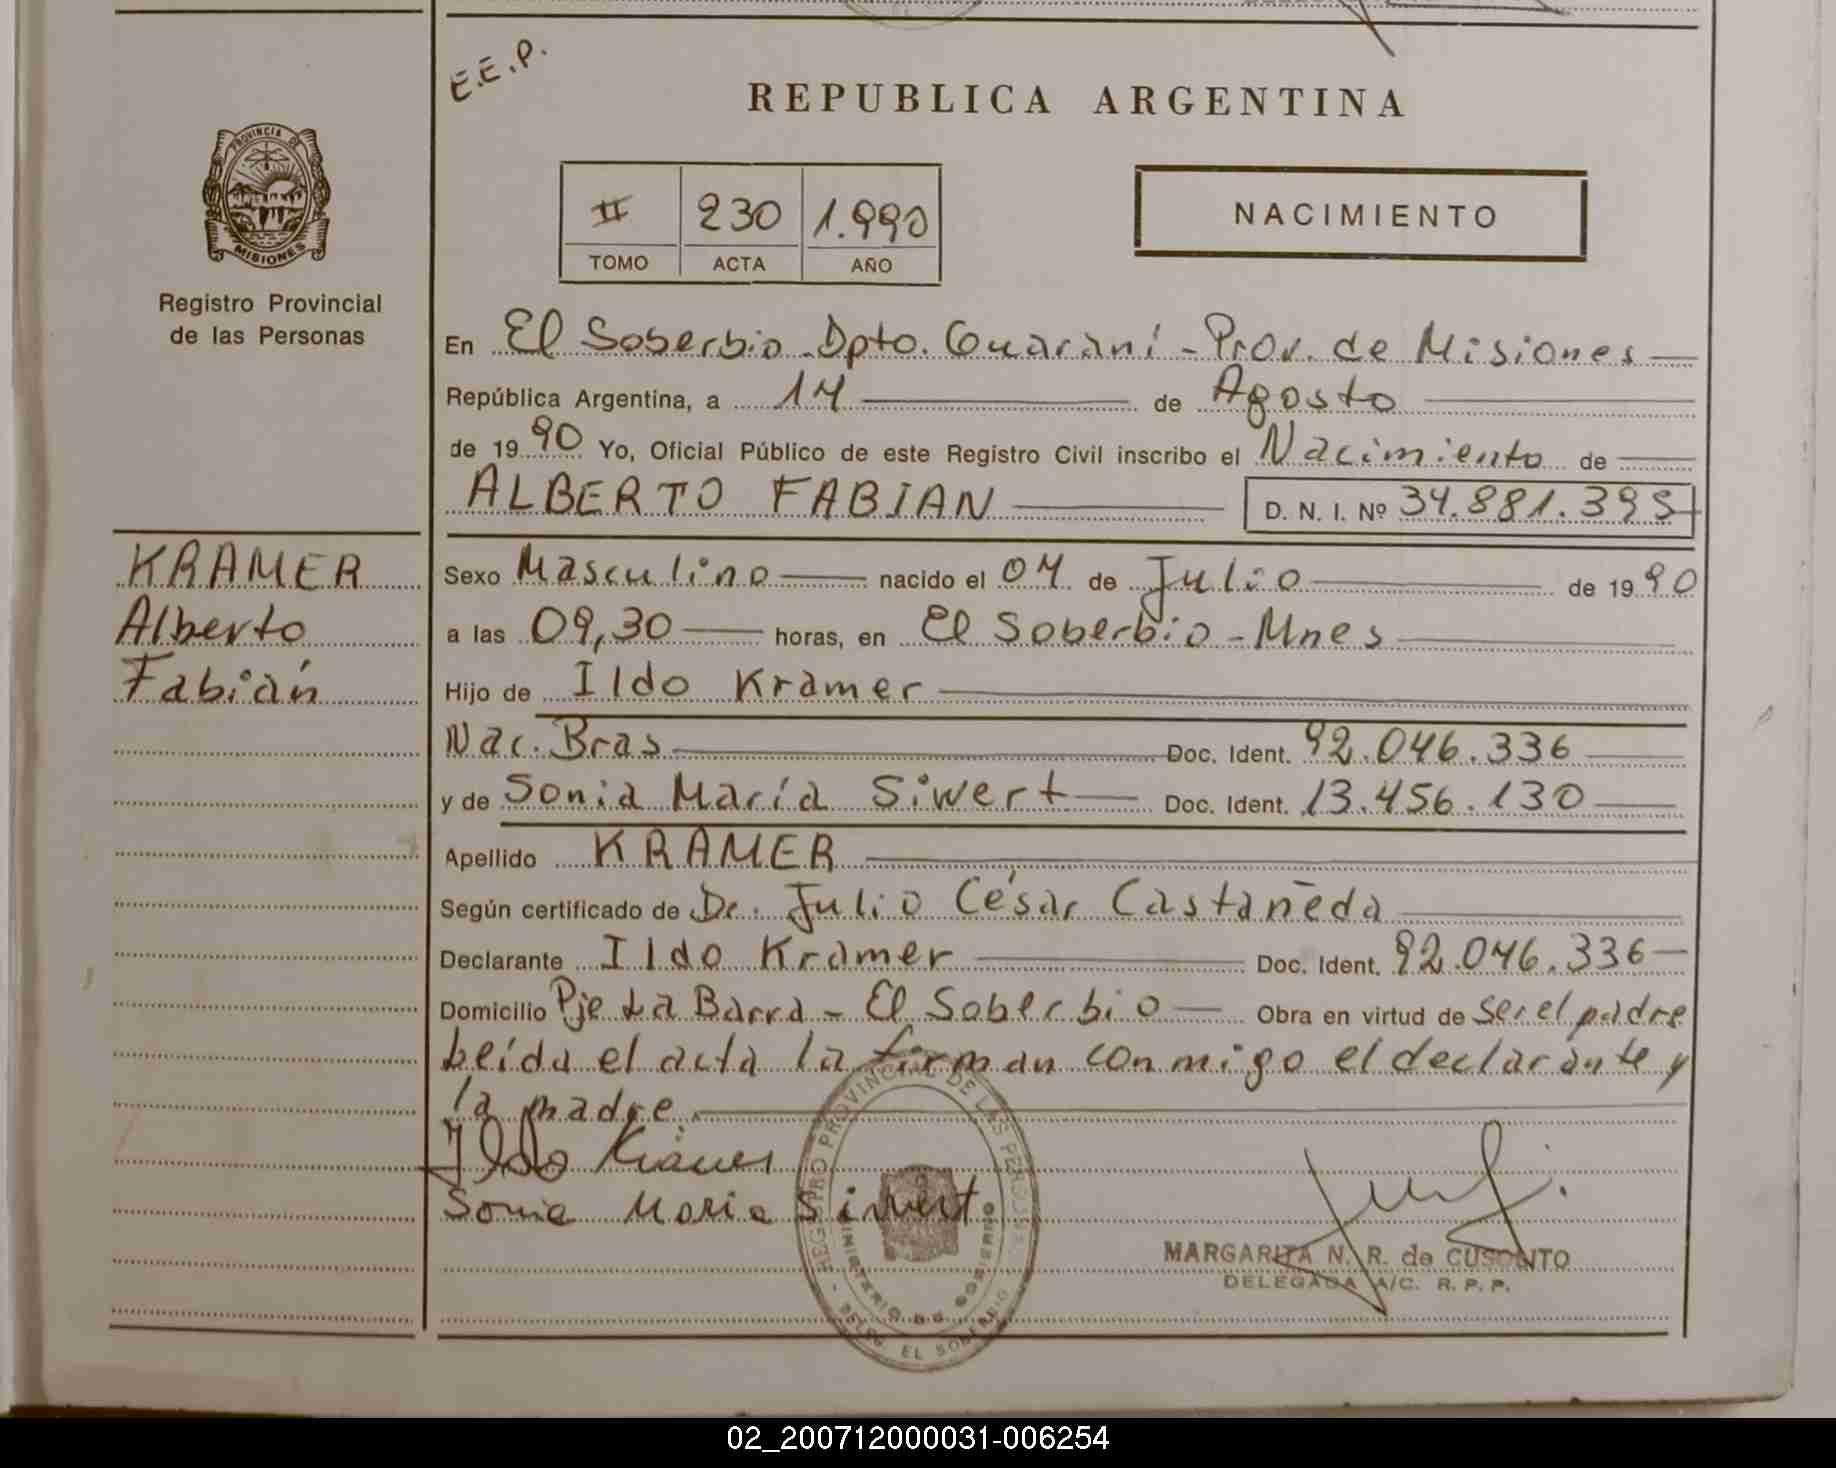 E.E.P.
REPUBLICA ARGENTINA
PROVINCIA DE
MISIONES
II 230 1.990
TOMO ACTA AÑO
NACIMIENTO
Registro Provincial
de las Personas
En El Soberbio Dpto. Guaraní - Prov. de Misiones
República Argentina, a 14 de Agosto
de 1990 Yo, Oficial Público de este Registro Civil inscribo el Nacimiento de
ALBERTO FABIAN D. N. I. Nº 34.881.395
KRAMER
Alberto
Fabián
Sexo Masculino nacido el 04 de Julio de 1990
a las 09,30 horas, en El Soberbio - Mnes
Hijo de Ildo Kramer
Nac. Bras Doc. Ident. 92.046.336
y de Sonia María Siwert Doc. Ident. 13.456.130
Apellido KRAMER
Según certificado de Dr. Julio César Castañeda
Declarante Ildo Kramer Doc. Ident. 92.046.336
Domicilio Pje La Barra - El Soberbio Obra en virtud de ser el padre
Leída el acta la firman conmigo el declarante y
la madre.
Ildo Kramer
Sonia Maria Siwert
REGISTRO PROVINCIAL DE LAS PERSONAS
MINISTERIO DE GOBIERNO
DELEG. EL SOBERBIO
MARGARITA N. R. de CUSOLITO
DELEGADA A/C. R. P. P.
02_200712000031-006254